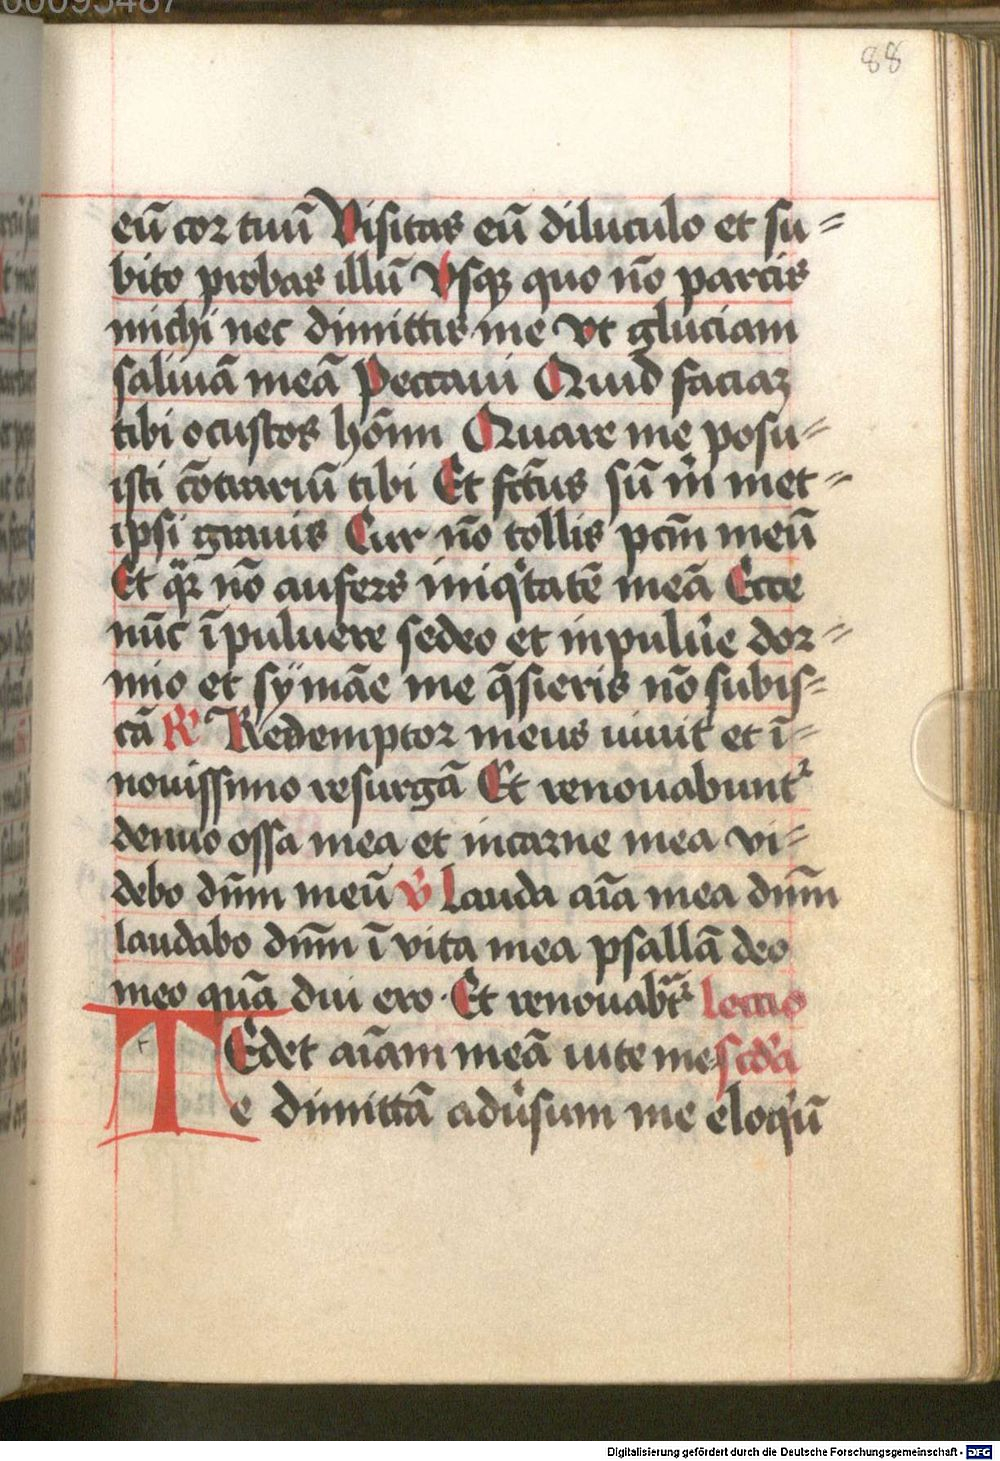 00095487
88
eū cor tuū Visitas eū diluculo et su=
bito probas illū Vsqꝫ quo nō parcis
michi nec dimittis me vt gluciam
saliuā meā Peccaui Quid faciaꝫ
tibi o custos hōīm Quare me posu=
isti cōtrariū tibi Et fcūs sū m̄ met=
ipsi grauis Cur nō tollis pcm̄ meū
Et qr̄ nō aufers iniqͥtatē meā Ecce
nūc ī puluere sedeo et in puluͤe dor=
mio et sy māe me q̄sieris nō subis=
tā R̸ Redemptor meus uiuit et ī=
nouissimo resurgā Et renouabuntᷣ
denuo ossa mea et in carne mea vi=
debo dn̄m meū v̸ Lauda aīa mea dnm̄
laudabo dnm̄ ī vita mea psallā deo
meo quā diu ero · Et renouabt̄ᷣ Lectio
TEdet aīam meā uite me scd̄a
e dimittā aduͤsum me eloqͥū
Digitalisierung gefördert durch die Deutsche Forschungsgemeinschaft - DFG